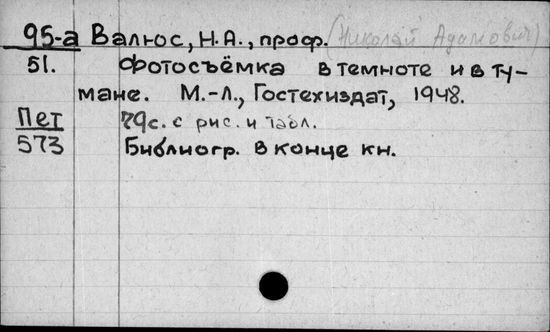 95-а Валюс, Н.А., проф. (Николай Адамович)
51. Фотосъёмка в темноте и в ту-
мане. М.-Л., Гостехиздат, 1948.
Пет 79с. с рис. и табл.
573 Библиогр. в конце кн.